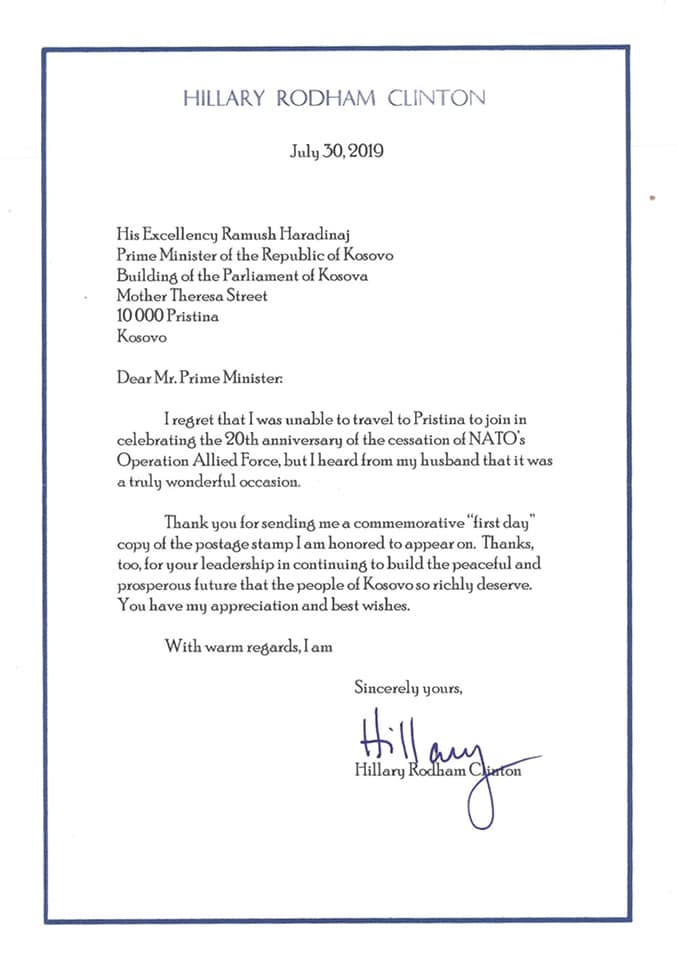 HILLARY RODHAM CLINTON
July 30, 2019
His Excellency Ramush Haradinaj
Prime Minister of the Republic of Kosovo
Building of the Parliament of Kosova
Mother Theresa Street
10 000 Pristina
Kosovo
Dear Mr. Prime Minister:
I regret that I was unable to travel to Pristina to join in
celebrating the 20th anniversary of the cessation of NATO's
Operation Allied Force, but I heard from my husband that it was
a truly wonderful occasion.
Thank you for sending me a commemorative "first day"
copy of the postage stamp I am honored to appear on. Thanks,
too, for your leadership in continuing to build the peaceful and
prosperous future that the people of Kosovo so richly deserve.
You have my appreciation and best wishes.
With warm regards, I am
Sincerely yours,
Hillary
Hillary Rodham Clinton